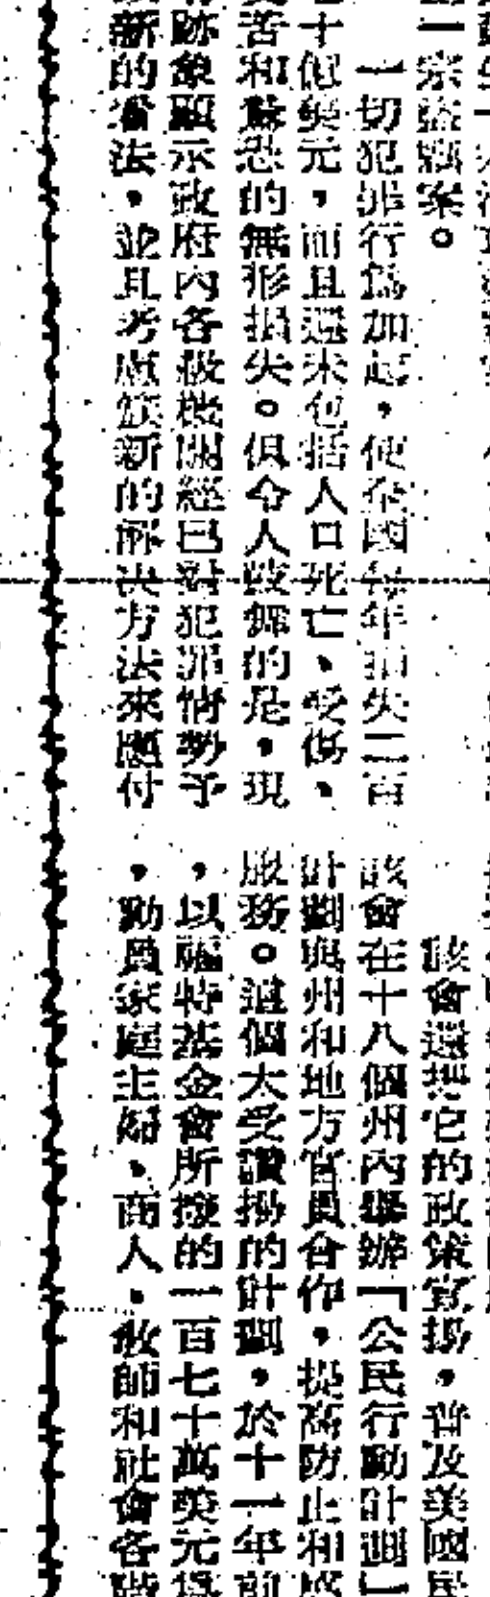 一宗盜竊案。
一切犯罪行為加起，使全國每年損失二百
十億美元，而且還未包括人口死亡、受傷、
苦和驚恐的無形損失。但令人鼓舞的是，現
跡象顯示政府內各級機關經已對犯罪情勢予
新的看法，並且考慮簇新的解決方法來應付
該會還把它的政策宣揚，普及美國民
該會在十八個州內舉辦「公民行動計劃」
計劃與州和地方官員合作，提高防止和
服務。這個大受讚揚的計劃，於十一年前
，以福特基金會所撥的一百七十萬美元
，動員家庭主婦、商人、教師和社會各階